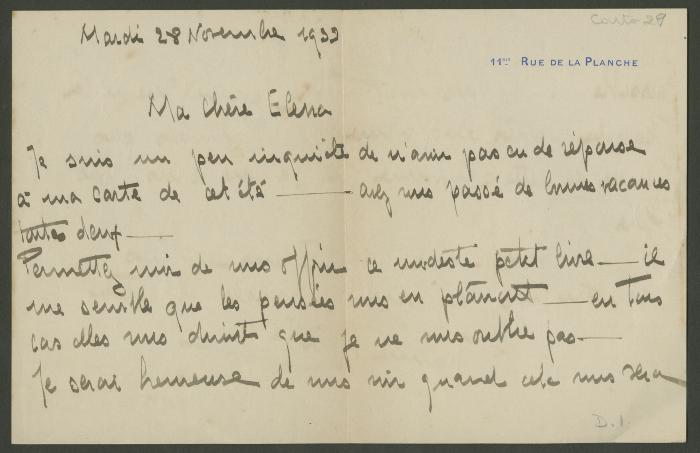 Carto 29
Mardi 28 Novembre 1933
11bis RUE DE LA PLANCHE
Ma chère Elena
Je suis un peu inquiète de n'avoir pas eu de réponse
à ma carte de cet été — avez vous passé de bonnes vacances
toutes deux —
Permettez moi de vous offrir ce modeste petit livre — il
me semble que les pensées vous en plairont — en tous
cas elles vous diront que je ne vous oublie pas —
Je serai heureuse de vous voir quand cela vous sera
D.1.